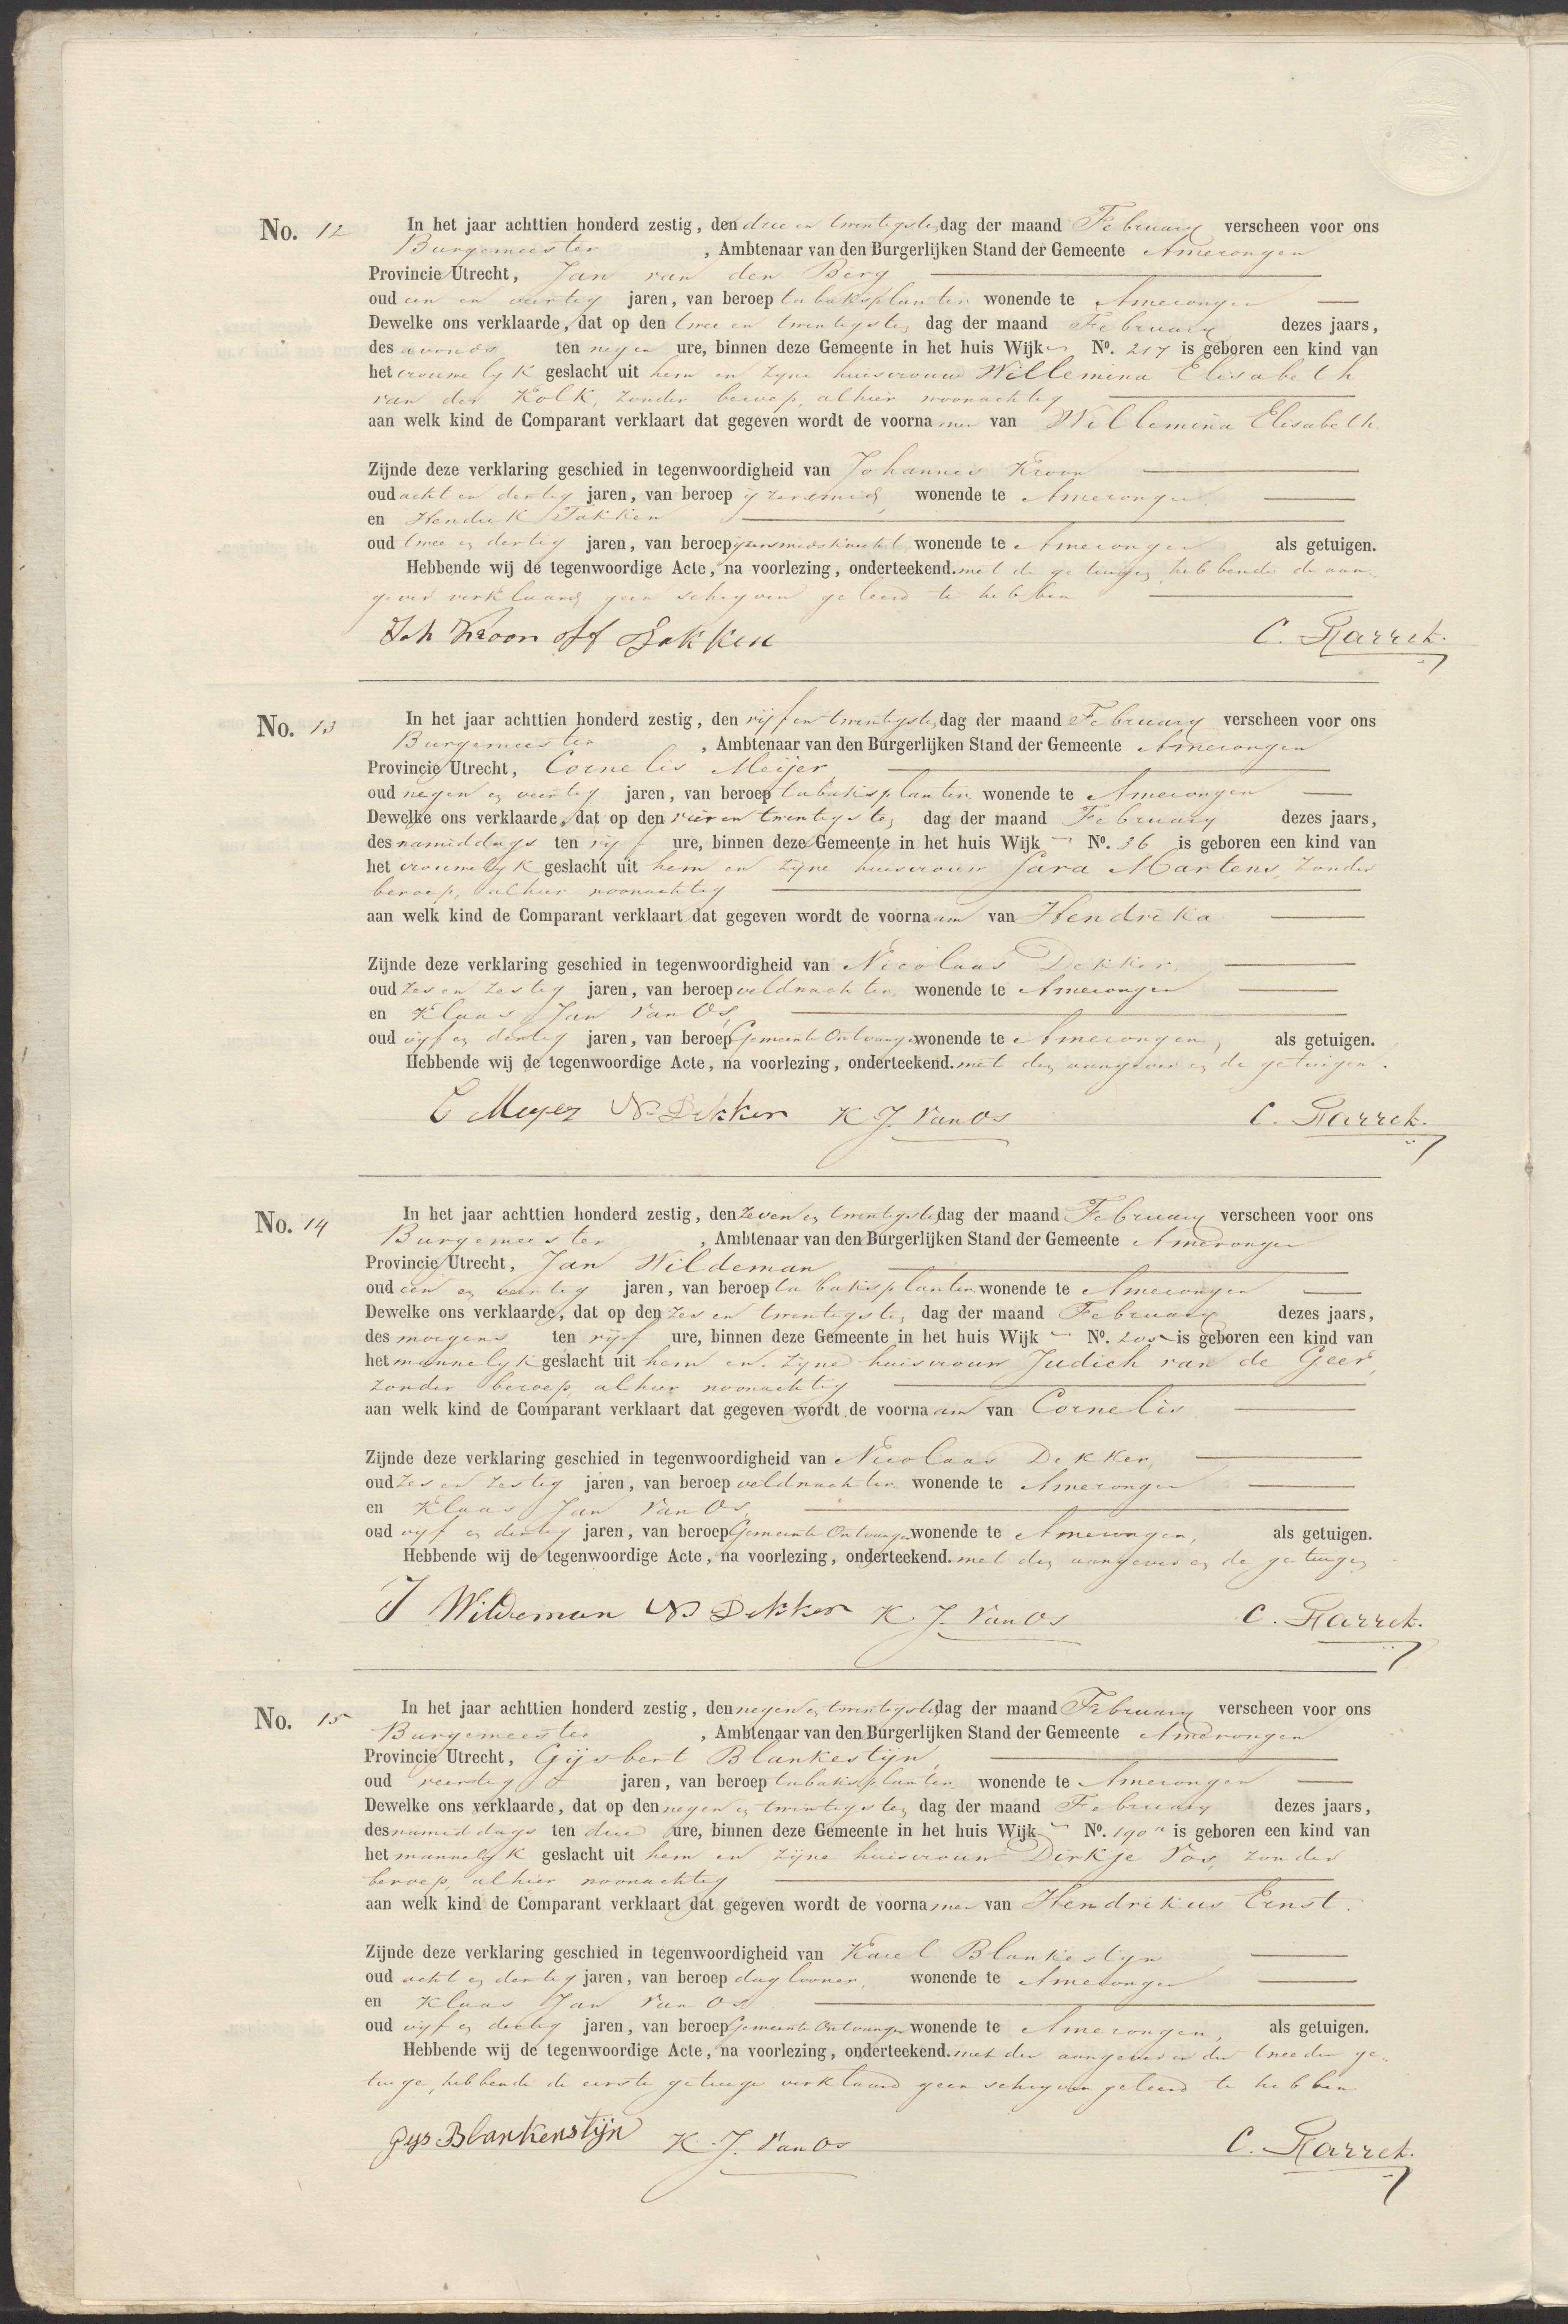 No. 12 In het jaar achttien honderd zestig, den drie en twintigsten dag der maand February verscheen voor ons
Burgemeester , Ambtenaar van den Burgerlijken Stand der Gemeente Amerongen
Provincie Utrecht, Jan van den Berg
oud een en veertig jaren, van beroep tabaksplanter wonende te Amerongen
Dewelke ons verklaarde, dat op den twee en twintigsten dag der maand February dezes jaars,
des avonds ten negen ure, binnen deze Gemeente in het huis Wijk No. 217 is geboren een kind van
het vrouwelyk geslacht uit hem en zyne huisvrouw Willemina Elisabeth
van der Kolk, zonder beroep, alhier woonachtig
aan welk kind de Comparant verklaart dat gegeven wordt de voornamen van Willemina Elisabeth.
Zijnde deze verklaring geschied in tegenwoordigheid van Johannes Kroon
oud acht en dertig jaren, van beroep yzersmid, wonende te Amerongen
en Hendrik Takken
oud twee en dertig jaren, van beroep yzersmidsknecht wonende te Amerongen als getuigen.
Hebbende wij de tegenwoordige Acte, na voorlezing, onderteekend. met de getuigen, hebbende de aan-
gever verklaard geen schryven geleerd te hebben
Joh Kroon H Takken C. Garret.
No. 13 In het jaar achttien honderd zestig, den vijf en twintigsten dag der maand February verscheen voor ons
Burgemeester , Ambtenaar van den Burgerlijken Stand der Gemeente Amerongen
Provincie Utrecht, Cornelis Meijer,
oud negen en veertig jaren, van beroep tabaksplanter wonende te Amerongen
Dewelke ons verklaarde, dat op den vier en twintigsten dag der maand February dezes jaars,
des namiddags ten vijf ure, binnen deze Gemeente in het huis Wijk No. 36 is geboren een kind van
het vrouwelyk geslacht uit hem en zyne huisvrouw Sara Martens, zonder
beroep, alhier woonachtig
aan welk kind de Comparant verklaart dat gegeven wordt de voornaam van Hendrika
Zijnde deze verklaring geschied in tegenwoordigheid van Nicolaas Dekker.
oud zes en zestig jaren, van beroep veldwachter wonende te Amerongen
en Klaas Jan van Os,
oud vyf en dertig jaren, van beroep Gemeente Ontvanger wonende te Amerongen, als getuigen.
Hebbende wij de tegenwoordige Acte, na voorlezing, onderteekend. met den aangever en de getuigen.
C Meyer Ns Dekker K. J. Van Os C. Garret.
No. 14 In het jaar achttien honderd zestig, den zeven en twintigsten dag der maand February verscheen voor ons
Burgemeester , Ambtenaar van den Burgerlijken Stand der Gemeente Amerongen
Provincie Utrecht, Jan Wildeman
oud een en veertig jaren, van beroep tabaksplanter wonende te Amerongen
Dewelke ons verklaarde, dat op den zes en twintigsten dag der maand February dezes jaars,
des morgens ten vyf ure, binnen deze Gemeente in het huis Wijk No. 205 is geboren een kind van
het mannelyk geslacht uit hem en zyne huisvrouw Judich van de Geer,
zonder beroep, alhier woonachtig
aan welk kind de Comparant verklaart dat gegeven wordt de voornaam van Cornelis
Zijnde deze verklaring geschied in tegenwoordigheid van Nicolaas Dekker,
oud zes en zestig jaren, van beroep veldwachter wonende te Amerongen
en Klaas Jan van Os,
oud vyf en dertig jaren, van beroep Gemeente Ontvanger wonende te Amerongen, als getuigen.
Hebbende wij de tegenwoordige Acte, na voorlezing, onderteekend. met den aangever en de getuigen
J Wildeman Ns Dekker K. J. Van Os C. Garret.
No. 15 In het jaar achttien honderd zestig, den negen en twintigsten dag der maand February verscheen voor ons
Burgemeester , Ambtenaar van den Burgerlijken Stand der Gemeente Amerongen
Provincie Utrecht, Gijsbert Blankestijn,
oud veertig jaren, van beroep tabaksplanter wonende te Amerongen
Dewelke ons verklaarde, dat op den negen en twintigsten dag der maand February dezes jaars,
des namiddags ten drie ure, binnen deze Gemeente in het huis Wijk No. 190a is geboren een kind van
het mannelyk geslacht uit hem en zijne huisvrouw Dirkje Vos, zonder
beroep, alhier woonachtig
aan welk kind de Comparant verklaart dat gegeven wordt de voornamen van Hendrikus Ernst.
Zijnde deze verklaring geschied in tegenwoordigheid van Karel Blankestyn
oud acht en dertig jaren, van beroep daglooner, wonende te Amerongen
en Klaas Jan van Os
oud vyf en dertig jaren, van beroep Gemeente Ontvanger wonende te Amerongen, als getuigen.
Hebbende wij de tegenwoordige Acte, na voorlezing, onderteekend. met den aangever en den tweeden ge-
tuige, hebbende de eerste getuige verklaard geen schryven geleerd te hebben
Gys Blankenstijn K. J. Van Os C. Garret.